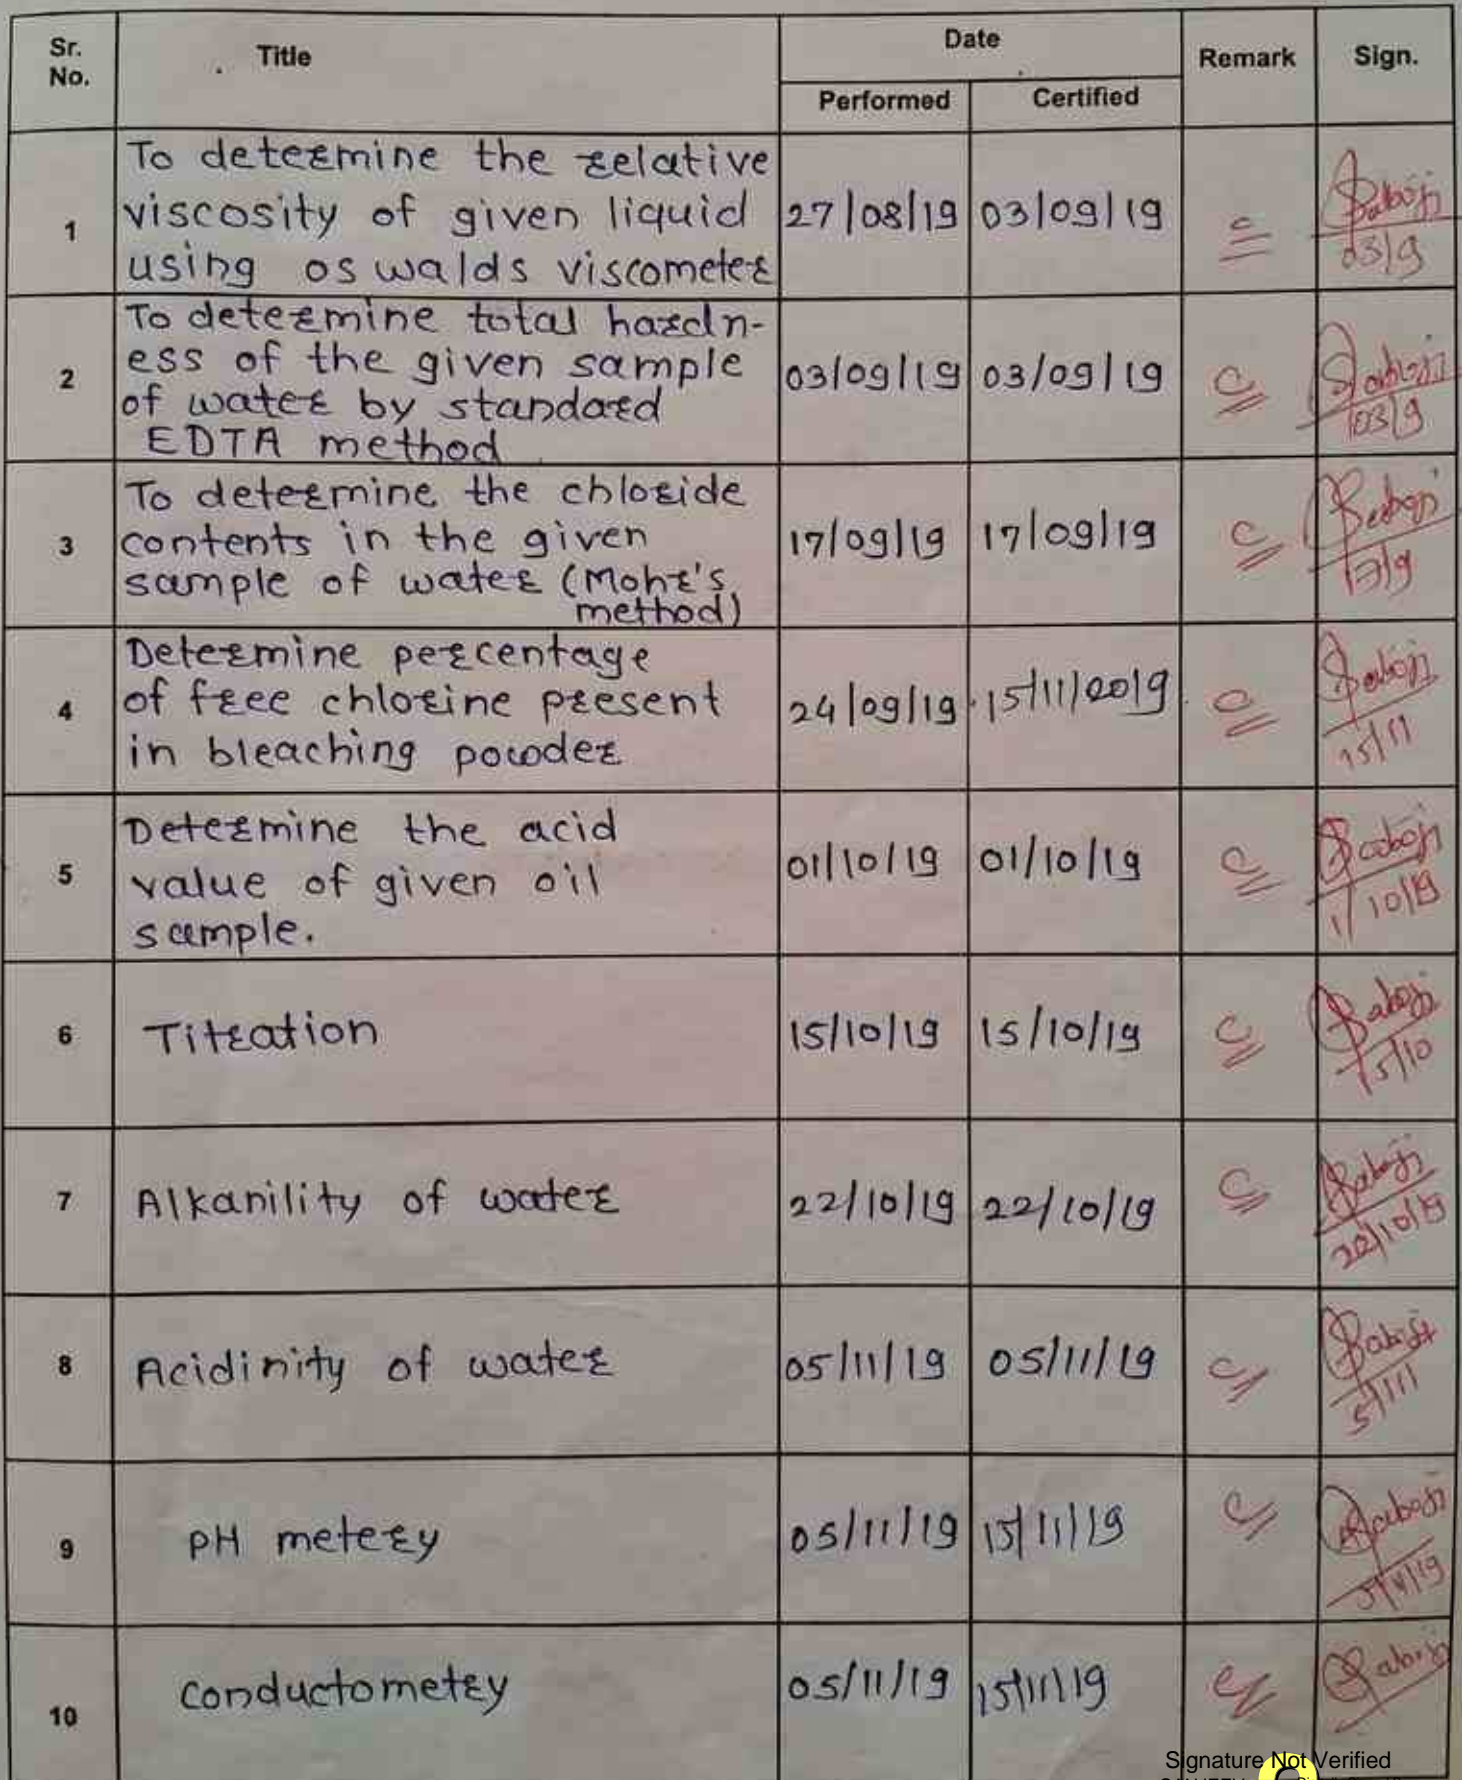 Sr. No.
Title
Date
Remark
Sign.
Performed
Certified
1
To determine the relative
viscosity of given liquid
using oswalds viscometer
27/08/19
03/09/19
C
03/9
2
To determine total hardn-
ess of the given sample
of water by standard
EDTA method
03/09/19
03/09/19
C
03/9
3
To determine the chloride
contents in the given
sample of water (Mohr's
method)
17/09/19
17/09/19
C
4
Determine percentage
of free chlorine present
in bleaching powder
24/09/19
15/11/2019
C
15/11
5
Determine the acid
value of given oil
sample.
01/10/19
01/10/19
C
1/10/19
6
Titration
15/10/19
15/10/19
C
15/10
7
Alkanility of water
22/10/19
22/10/19
C
22/10/19
8
Acidinity of water
05/11/19
05/11/19
C
5/11
9
pH metery
05/11/19
15/11/19
C
10
Conductometry
05/11/19
15/11/19
C
Signature Not Verified